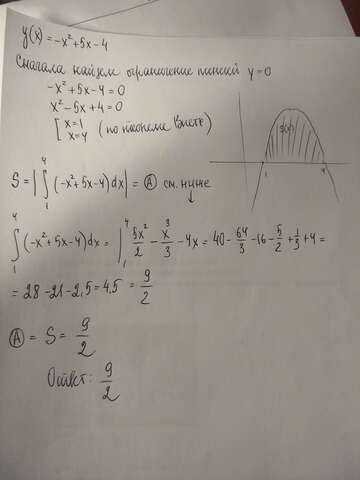 y(x) = -x² + 5x - 4
Сначала найдем ограничение линией y = 0
-x² + 5x - 4 = 0
x² - 5x + 4 = 0
[ x = 1
x = 4 (по теореме Виета)
S(x)
1 4
S = | ∫₁⁴ (-x² + 5x - 4) dx | = Ⓐ см. ниже
↓
∫₁⁴ (-x² + 5x - 4) dx = |₁⁴ 5x²/2 - x³/3 - 4x = 40 - 64/3 - 16 - 5/2 + 1/3 + 4 =
= 28 - 21 - 2,5 = 4,5 = 9/2
Ⓐ = S = 9/2
Ответ: 9/2